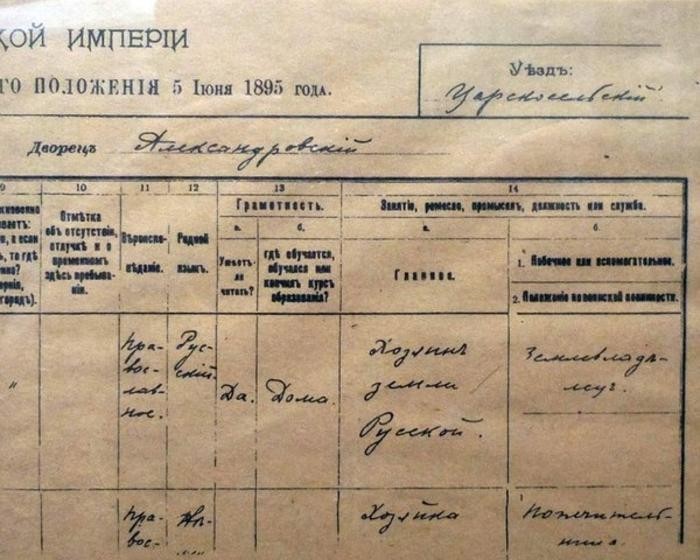 КОЙ ИМПЕРІИ
ГО ПОЛОЖЕНІЯ 5 Іюня 1895 года.
Уѣздъ:
Царскосельскій
Дворецъ Александровскій
9 10 11 12 13 14
Грамотность.
Занятіе, ремесло, промыселъ, должность или служба.
Отмѣтка
объ отсутствіи,
отлучкѣ и о
временномъ
здѣсь пребыва-
ніи.
Вѣроиспо-
вѣданіе.
Родной
языкъ.
а.
Умѣетъ-
ли
читать?
б.
гдѣ обучается,
обучался или
кончилъ курсъ
образованія?
а.
Главное.
б.
1. Побочное или вспомогательное.
2. Положеніе по воинской повинности.
„
Пра-
вос-
лав-
ное.
Рус-
скій.
Да.
Дома.
Хозяинъ
земли
Русской.
Землевладѣ-
лецъ.
Пра-
вос-
Хозяйка
Попечитель-
ница.